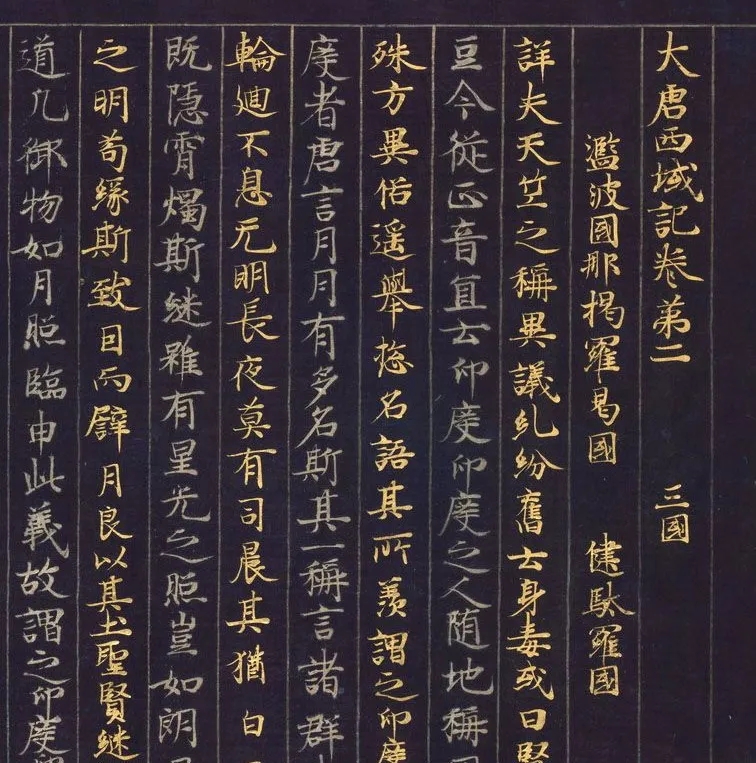 大唐西域記卷第二 三國
濫波國那揭羅曷國 健馱羅國
詳夫天竺之稱異議糺紛舊云身毒或曰賢
豆今從正音宜云印度印度之人随地稱
殊方異俗遥舉捴名語其所羨謂之印度
度者唐言月月有多名斯其一稱言諸群
輪迴不息无明長夜莫有司晨其猶白
既隱宵燭斯継雖有星光之照豈如朗
之明苟緣斯致因而譬月良以其土聖賢継
道凡御物如月照臨由此義故謂之印度